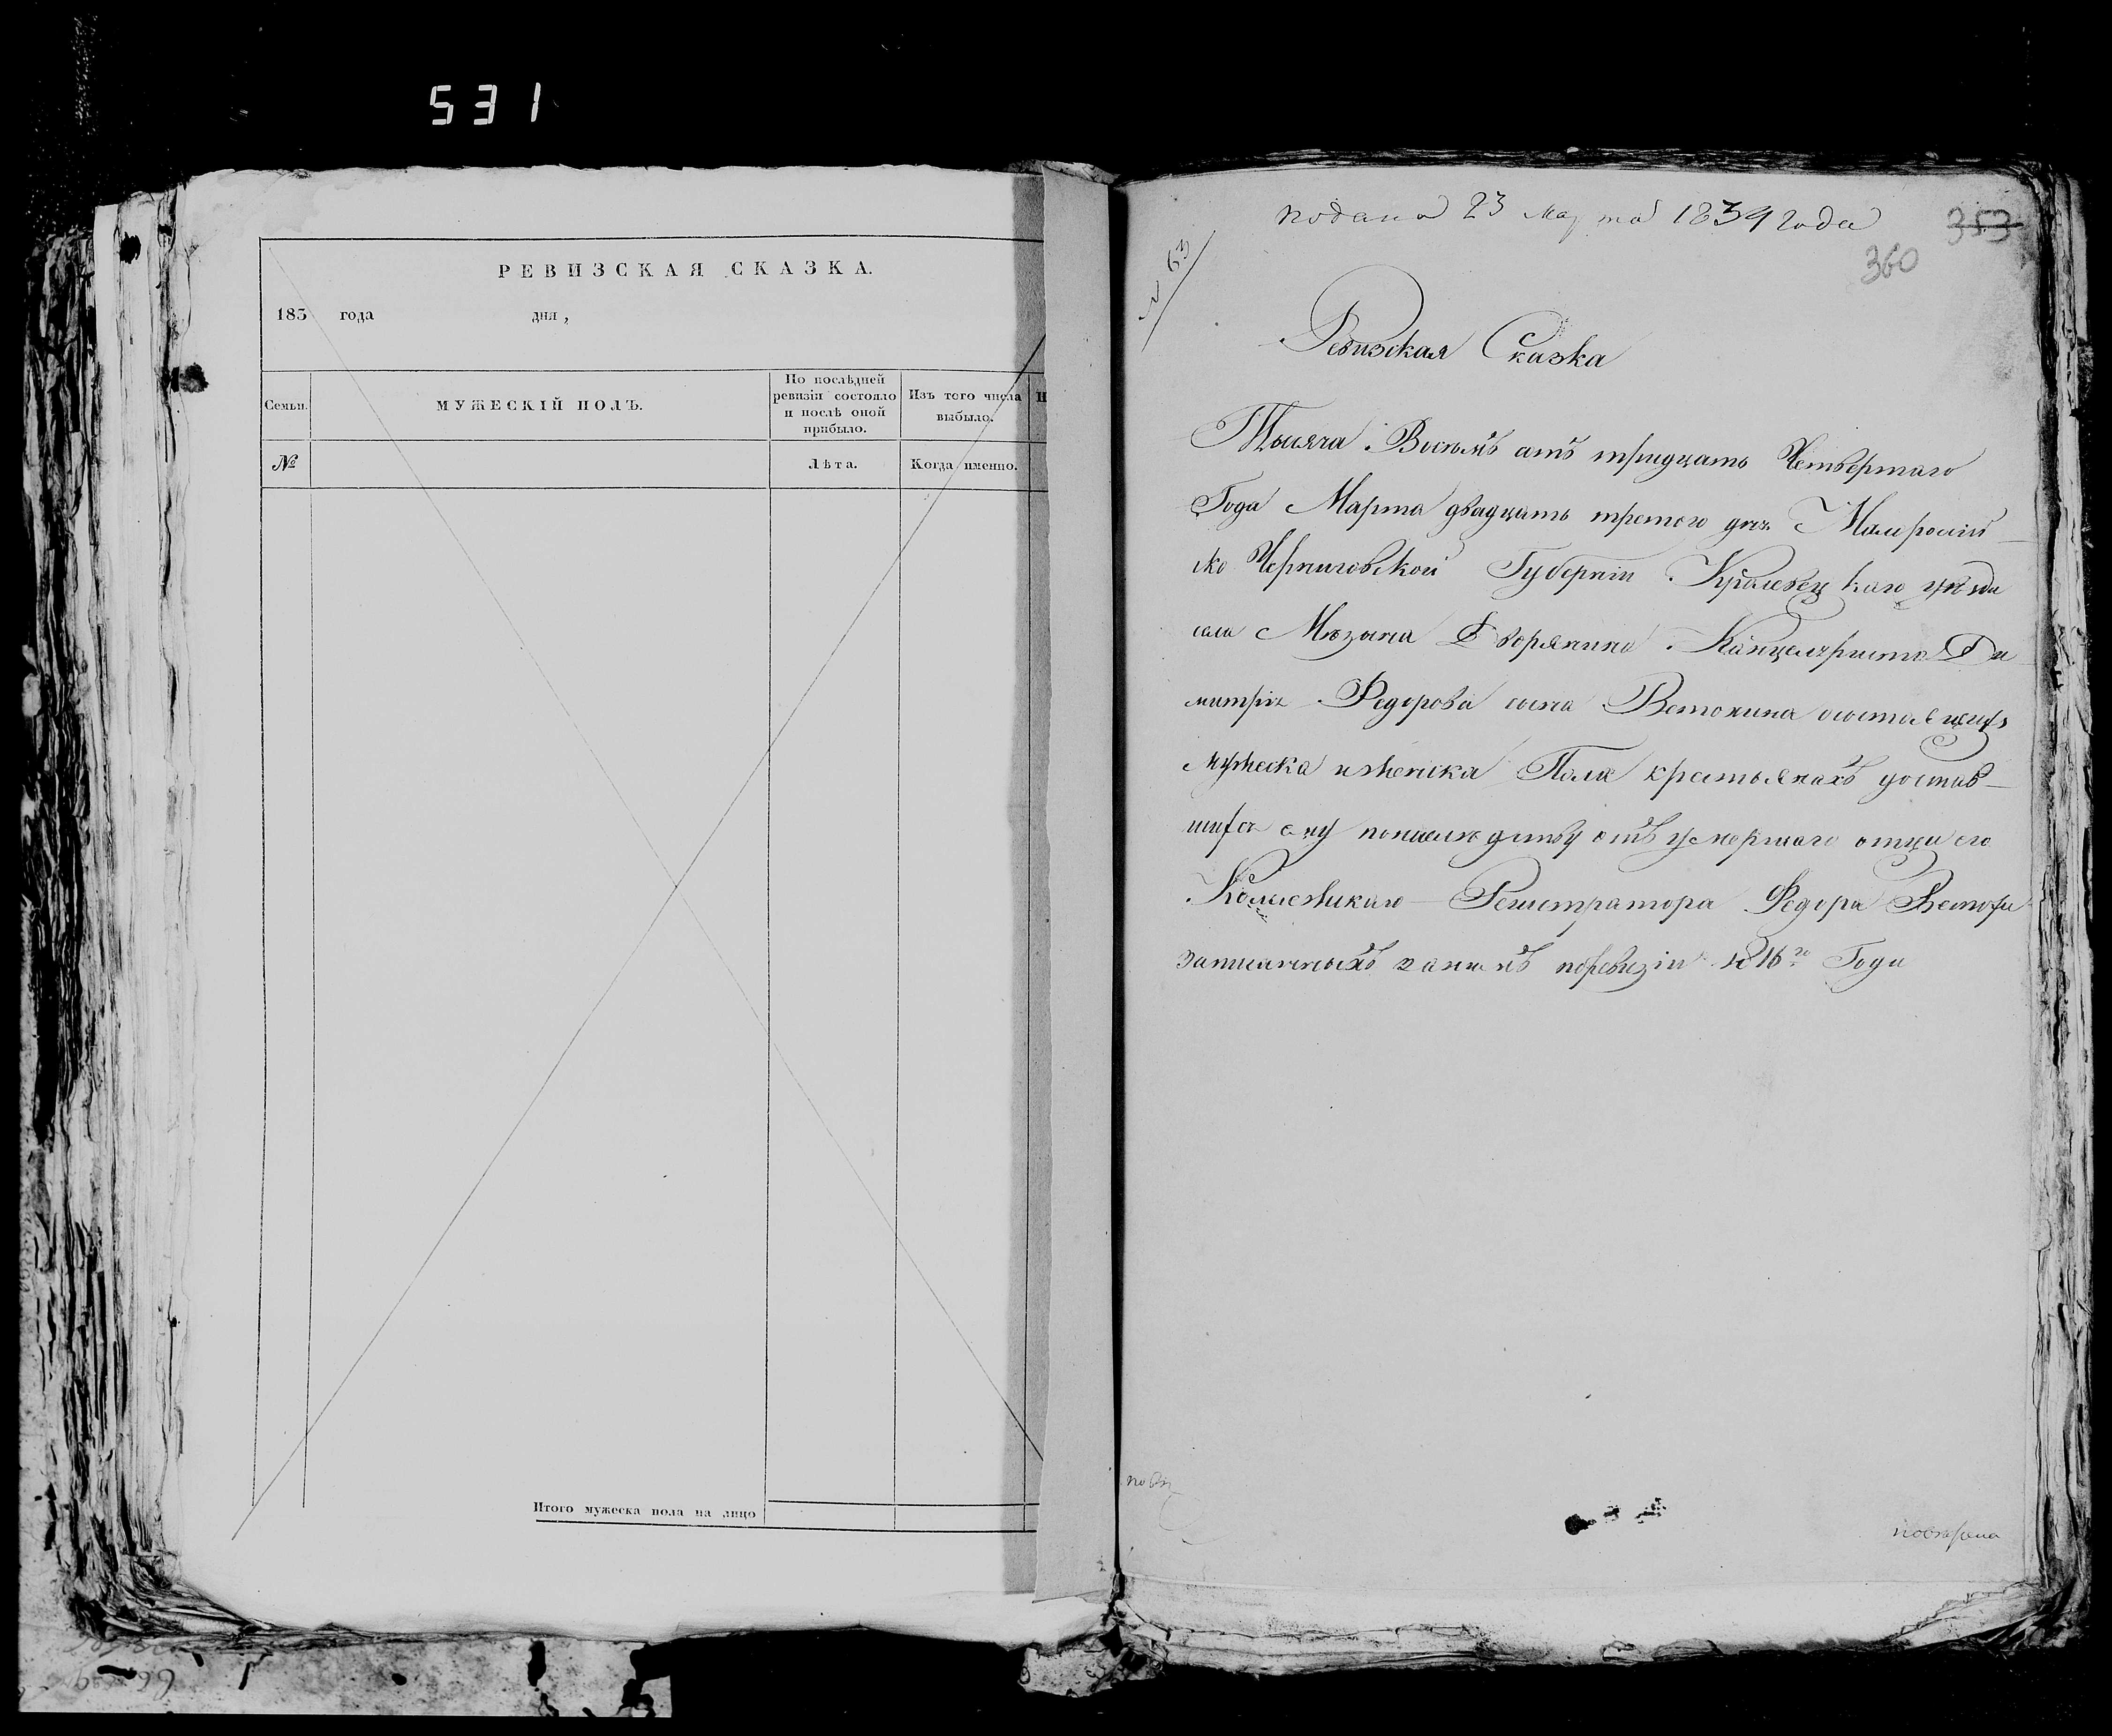 531
РЕВИЗСКАЯ СКАЗКА.
183 года дня,
Семьи.
МУЖЕСКІЙ ПОЛЪ.
По послѣдней
ревизіи состояло
и послѣ оной
прибыло.
Изъ того числа
выбыло.
№
Лѣта.
Когда именно.
Итого мужеска пола на лицо
подана 23 марта 1834 года
353
360
№ 63
Ревизская Сказка
Тысяча Восемъ сотъ тридцать Четвертаго
Года Марта двадцать третего дня Малороссій-
ско Черниговской Губерніи Кролевецкаго уѣзда
села Мезына Дворянина Канцеляриста Ди
митрія Федорова сына Ветохина о состоящихъ
мужеска и женска Пола крестьянахъ достав-
шихся ему по наследству отъ умершаго отца его
Колежскаго Регистратора Федора Ветохи
записанныхъ за нимъ по ревизіи 1816го Года
повѣрена